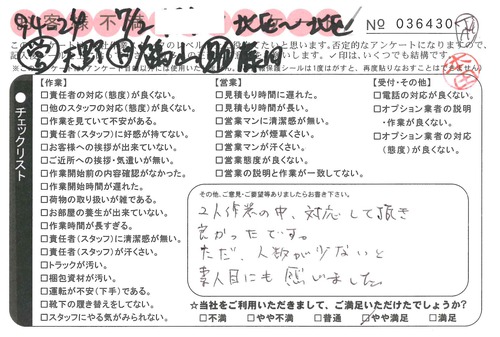 お客様 不満
7/2
北区〜北区
No 036430
否定的なアンケートになりますので、
✓印は、いくつでも結構です。
チェックリスト
【作業】
□責任者の対応(態度)が良くない。
□他のスタッフの対応(態度)が良くない。
□作業を見ていて不安がある。
□責任者(スタッフ)に好感が持てない。
□お客様への挨拶が出来ていない。
□ご近所への挨拶・気遣いが無い。
□作業開始前の内容確認がなかった。
□作業開始時間が遅れた。
□荷物の取り扱いが雑である。
□お部屋の養生が出来ていない。
□作業時間が長すぎる。
□責任者(スタッフ)に清潔感が無い。
□責任者(スタッフ)が汗くさい。
□トラックが汚い。
□梱包資材が汚い。
□運転が不安(下手)である。
□靴下の履き替えをしてない。
□スタッフにやる気がみられない。
【営業】
□見積もり時間に遅れた。
□見積もり時間が長い。
□営業マンに清潔感が無い。
□営業マンが煙草くさい。
□営業マンが汗くさい。
□営業態度が良くない。
□営業の説明と作業が一致してない。
【受付・その他】
□電話の対応が良くない。
□オプション業者の説明
・作業が良くない。
□オプション業者の対応
(態度)が良くない。
その他、ご意見・ご要望等ありましたらお書き下さい。
2人作業の中、対応して頂き
良かったです。
ただ、人数が少ないと
素人目にも感じました。
☆当社をご利用いただきまして、ご満足いただけたでしょうか?
□不満 □やや不満 □普通 ☑やや満足 □満足